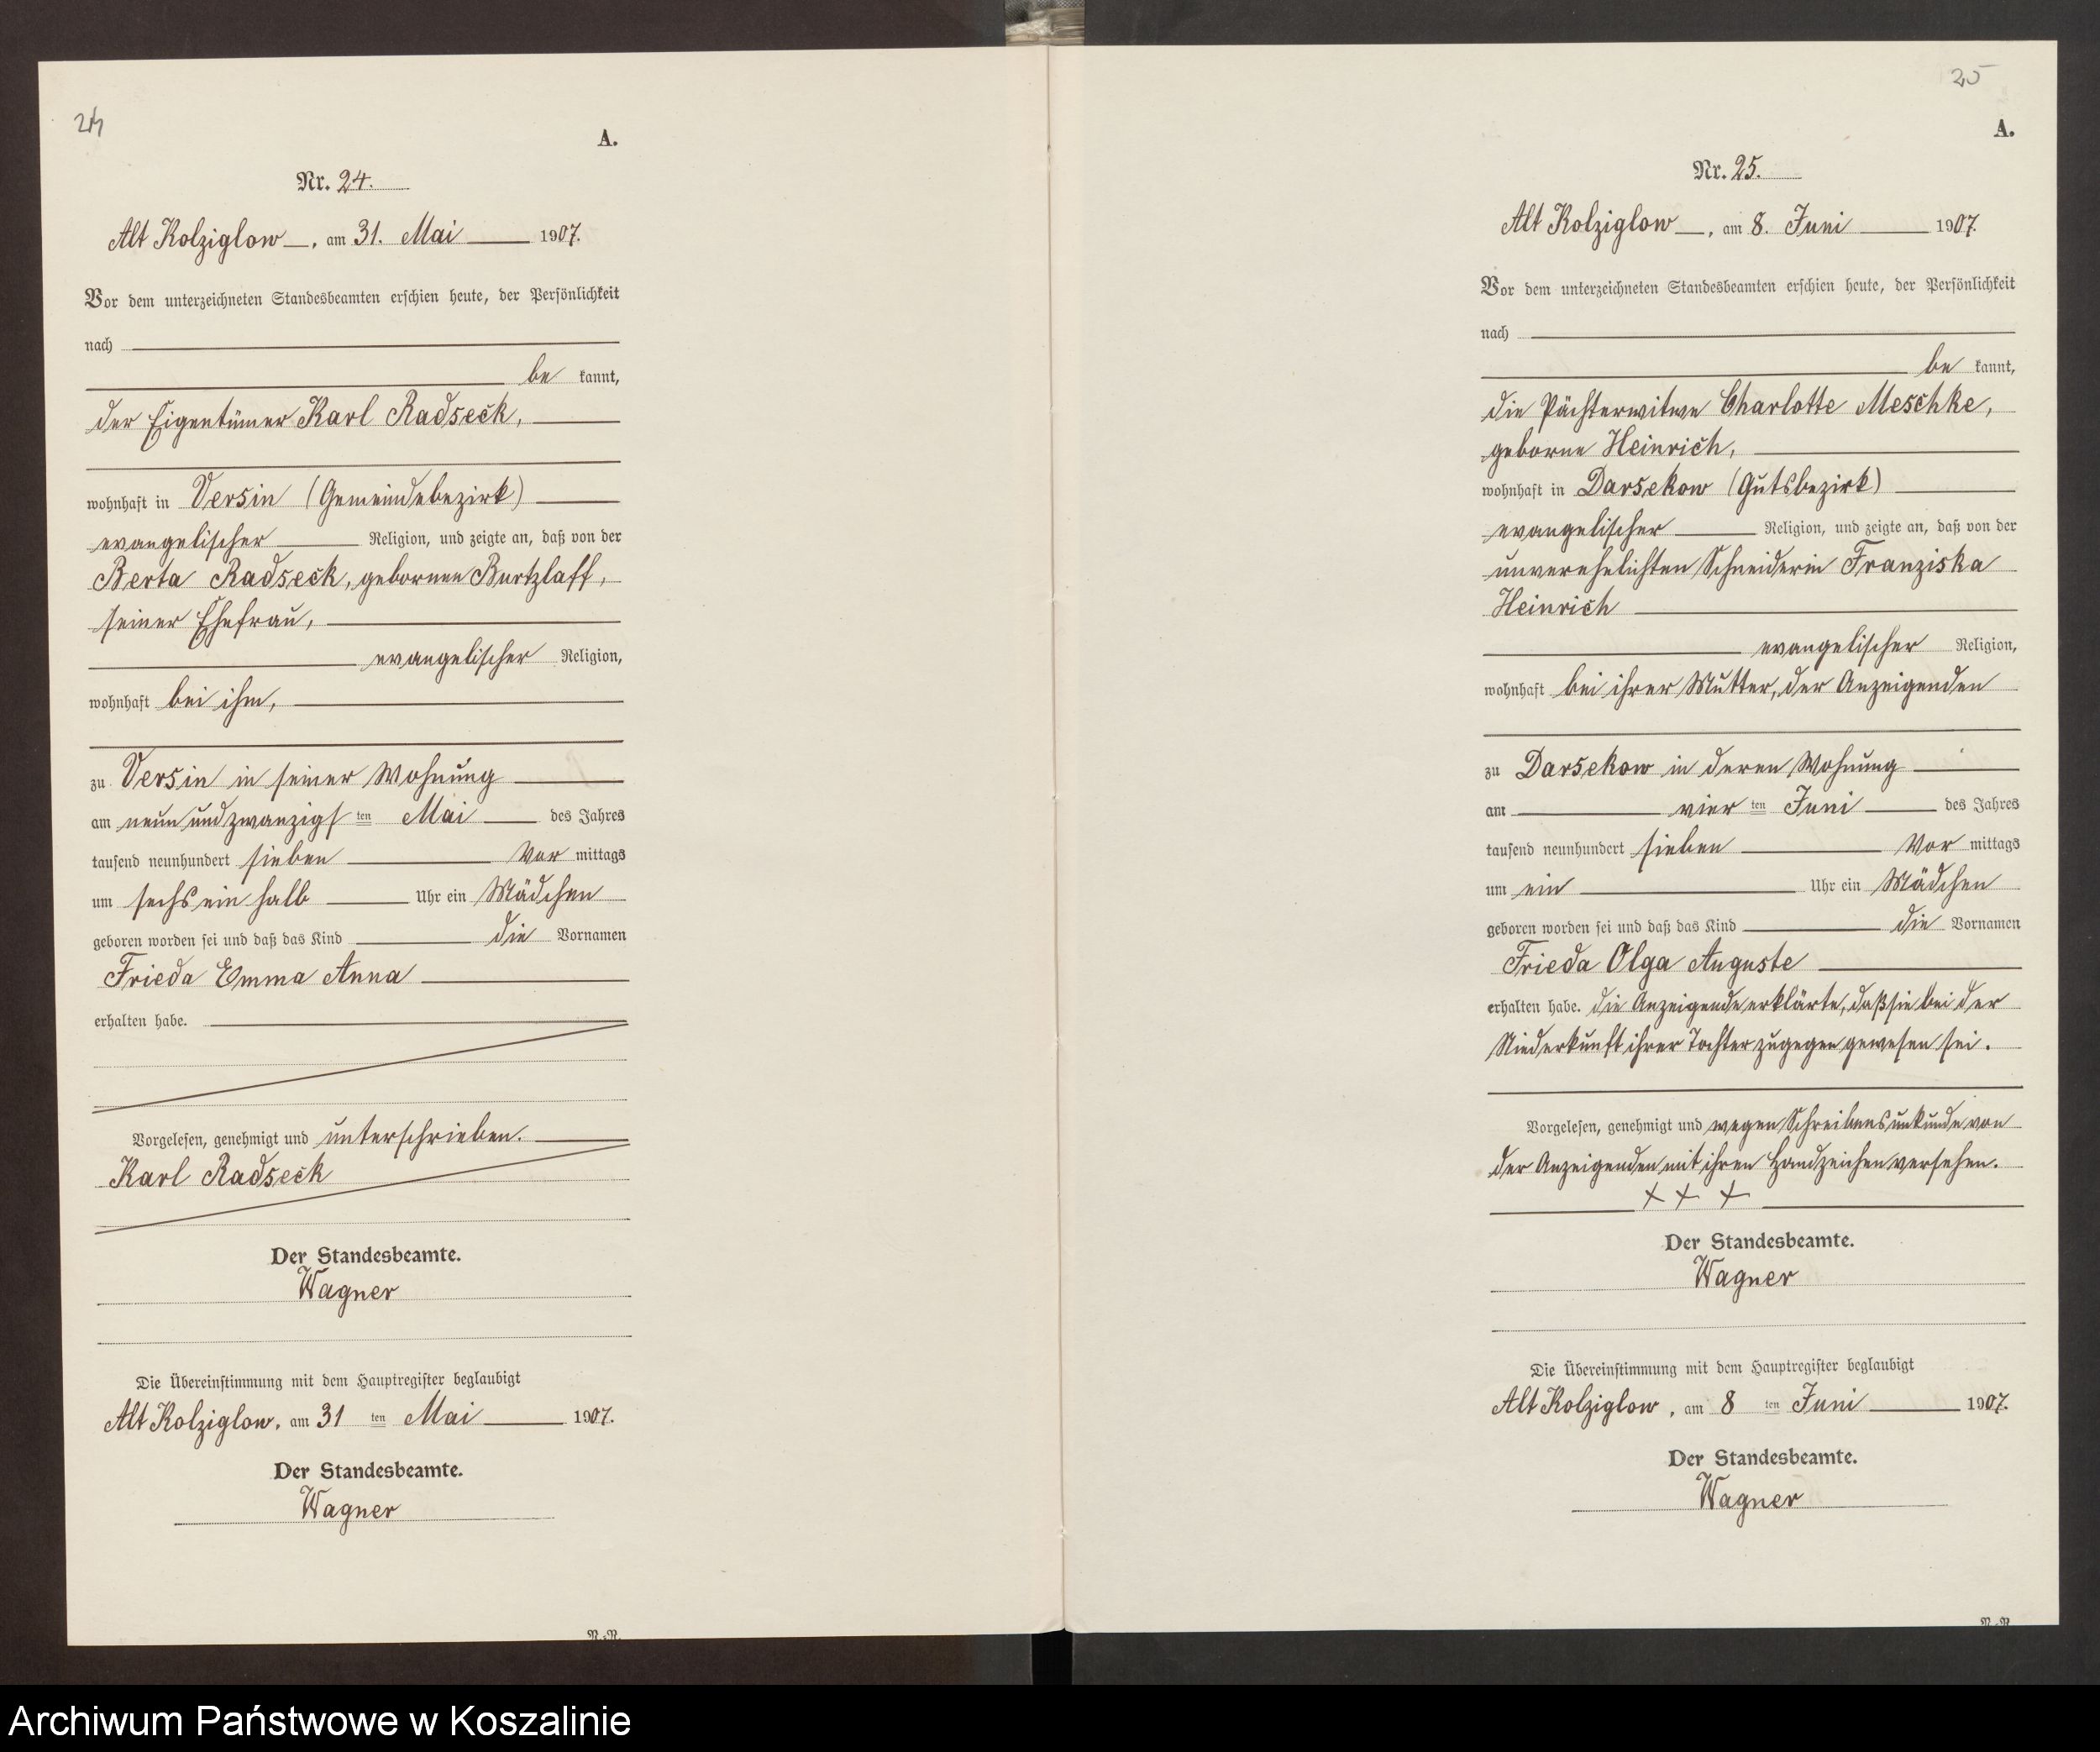 24
A.
Nr. 24.
Alt Kolziglow, am 31. Mai 1907.
Vor dem unterzeichneten Standesbeamten erschien heute, der Persönlichkeit
nach
be kannt,
der Eigentümer Karl Radseck,
wohnhaft in Versin (Gemeindebezirk)
evangelischer Religion, und zeigte an, daß von der
Berta Radseck, gebornen Burtzlaff,
seiner Ehefrau,
evangelischer Religion,
wohnhaft bei ihm,
zu Versin in seiner Wohnung
am neun und zwanzigs ten Mai des Jahres
tausend neunhundert sieben Vor mittags
um sechs ein halb Uhr ein Mädchen
geboren worden sei und daß das Kind die Vornamen
Frieda Emma Anna
erhalten habe.
Vorgelesen, genehmigt und unterschrieben.
Karl Radseck
Der Standesbeamte.
Wagner
Die Übereinstimmung mit dem Hauptregister beglaubigt
Alt Kolziglow, am 31 ten Mai 1907.
Der Standesbeamte.
Wagner
25
A.
Nr. 25.
Alt Kolziglow, am 8. Juni 1907.
Vor dem unterzeichneten Standesbeamten erschien heute, der Persönlichkeit
nach
be kannt,
die Pächterwitwe Charlotte Meschke,
geborne Heinrich,
wohnhaft in Darsekow (Gutsbezirk)
evangelischer Religion, und zeigte an, daß von der
unverehelichten Schneiderin Franziska
Heinrich
evangelischer Religion,
wohnhaft bei ihrer Mutter, der Anzeigenden
zu Darsekow in deren Wohnung
am vier ten Juni des Jahres
tausend neunhundert sieben Vor mittags
um ein Uhr ein Mädchen
geboren worden sei und daß das Kind die Vornamen
Frieda Olga Auguste
erhalten habe. die Anzeigende erklärte, daß sie bei der
Niederkunft ihrer Tochter zugegen gewesen sei.
Vorgelesen, genehmigt und wegen Schreibensunkunde von
der Anzeigenden mit ihren Handzeichen versehen.
+ + +
Der Standesbeamte.
Wagner
Die Übereinstimmung mit dem Hauptregister beglaubigt
Alt Kolziglow, am 8 ten Juni 1907.
Der Standesbeamte.
Wagner
Archiwum Państwowe w Koszalinie